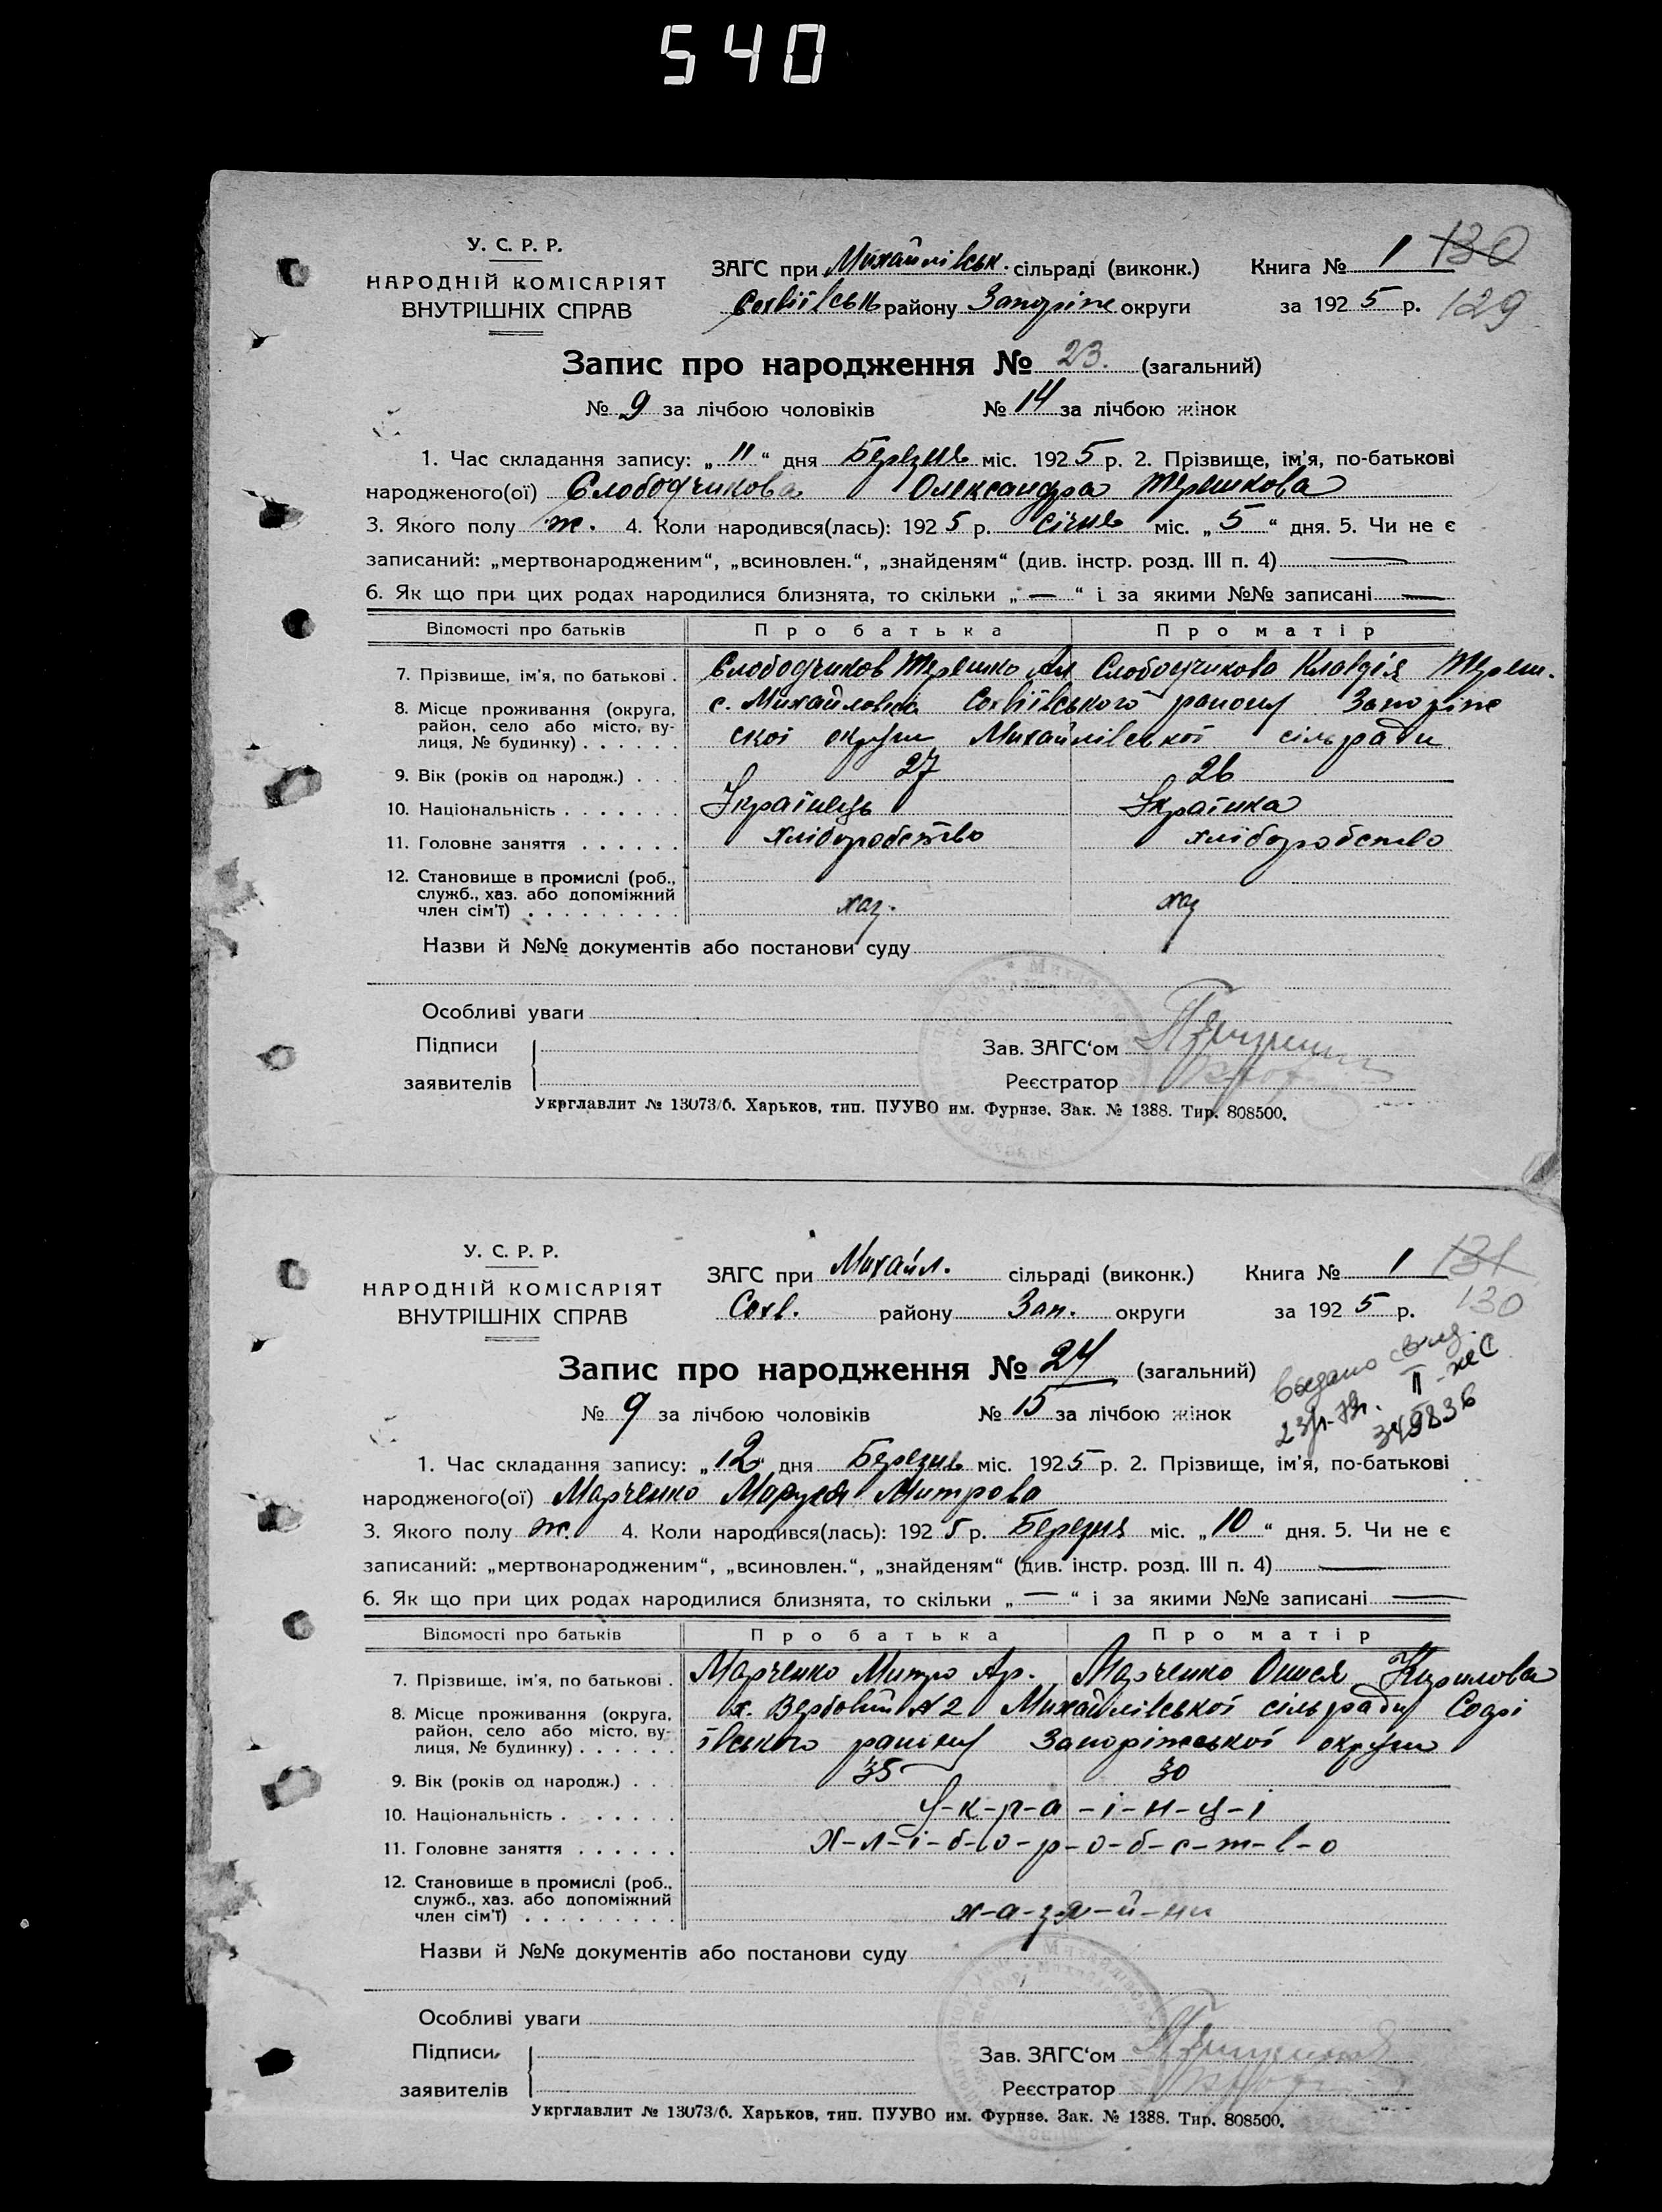 540
У. С. Р. Р.
НАРОДНІЙ КОМІСАРІЯТ
ВНУТРІШНІХ СПРАВ
ЗАГС при Михайлівськ. сільраді (виконк.)
Софіївськ району Запоріже округи
Книга № 1 130
за 1925 р. 129
Запис про народження № 23. (загальний)
№ 9 за лічбою чоловіків № 14 за лічбою жінок
1. Час складання запису: „11“ дня Березня міс. 1925 р. 2. Прізвище, ім'я, по-батькові
народженого(ої) Слободчикова Олександра Терешкова
3. Якого полу ж. 4. Коли народився(лась): 1925 р. Січня міс. „5“ дня. 5. Чи не є
записаний: „мертвонародженим“, „всиновлен.“, „знайденям“ (див. інстр. розд. III п. 4) —
6. Як що при цих родах народилися близнята, то скільки „—“ і за якими №№ записані —
Відомості про батьків Про батька Про матір
7. Прізвище, ім'я, по батькові . Слободчиков Терешко Слободчикова Клавдія Тереш.
8. Місце проживання (округа, район, село або місто, вулиця, № будинку) . . . . . . с. Михайловка Софіївського району Запоріже
ской округи Михайлівської сільради
9. Вік (років од народж.) . . . 27 26
10. Національність . . . . . . . Українець Українка
11. Головне заняття . . . . . . хліборобство хліборобство
12. Становище в промислі (роб., служб., хаз. або допоміжний член сім'ї) . . . . . . . . . хаз. хаз
Назви й №№ документів або постанови суду
Особливі уваги
Підписи
заявителів
Зав. ЗАГС'ом
Реєстратор
Укрглавлит № 13073/б. Харьков, тип. ПУУВО им. Фурнзе. Зак. № 1388. Тир. 808500.
У. С. Р. Р.
НАРОДНІЙ КОМІСАРІЯТ
ВНУТРІШНІХ СПРАВ
ЗАГС при Михайл. сільраді (виконк.)
Соф. району Зап. округи
Книга № 1 131
за 1925 р. 130
Запис про народження № 24 (загальний)
Выдано свид.
II-ЖС
349836
№ 9 за лічбою чоловіків № 15 за лічбою жінок
1. Час складання запису: „12“ дня Березня міс. 1925 р. 2. Прізвище, ім'я, по-батькові
народженого(ої) Марченко Маруся Митрова
3. Якого полу ж. 4. Коли народився(лась): 1925 р. Березня міс. „10“ дня. 5. Чи не є
записаний: „мертвонародженим“, „всиновлен.“, „знайденям“ (див. інстр. розд. III п. 4) —
6. Як що при цих родах народилися близнята, то скільки „—“ і за якими №№ записані —
Відомості про батьків Про батька Про матір
7. Прізвище, ім'я, по батькові . Марченко Митро Ар. Марченко Онися Кирилова
8. Місце проживання (округа, район, село або місто, вулиця, № будинку) . . . . . . х. Вербовий №2 Михайлівської сільради Софі
ївського району Запоріжської округи
9. Вік (років од народж.) . . . 35 30
10. Національність . . . . . . . У-к-р-а-ї-н-ц-і
11. Головне заняття . . . . . . Х-л-і-б-о-р-о-б-с-т-в-о
12. Становище в промислі (роб., служб., хаз. або допоміжний член сім'ї) . . . . . . . . . х-а-з-я-й-ни
Назви й №№ документів або постанови суду
Особливі уваги
Підписи
заявителів
Зав. ЗАГС'ом
Реєстратор
Укрглавлит № 13073/б. Харьков, тип. ПУУВО им. Фурнзе. Зак. № 1388. Тир. 808500.